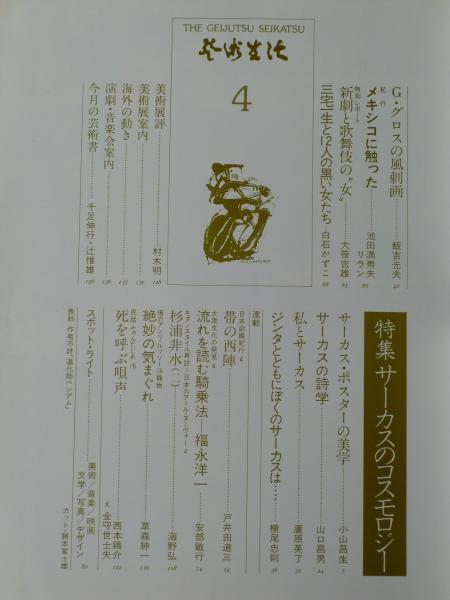 THE GEIJUTSU SEIKATSU
芸術生活
4
G・グロスの風刺画 飯吉光夫 42
紀行
メキシコに触った 池田満寿夫 リラン 95
特別レポート
新劇と歌舞伎の“女” 大笹吉雄 63
三宅一生と12人の黒い女たち 白石かずこ 88
美術展評 村木明 128
美術展案内 130
海外の動き 135
演劇・音楽会案内 136
今月の芸術書 千足伸行・辻惟雄 138
特集 サーカスのコスモロジー
サーカス・ポスターの美学 小山昌生 7
サーカスの詩学 山口昌男 24
私とサーカス 蘆原英了 30
ジンタとともにぼくのサーカスは…… 横尾忠則 38
連載
日本染織紀行 4
帯の西陣 戸井田道三 54
大衆文化の発見 8
流れを読む騎乗法―福永洋一 安部敏行 74
モダンスタイル再訪=日本のアール・ヌーヴォー 4
杉浦非水(一) 海野弘 108
絶妙の気まぐれ 草森紳一 116
死を呼ぶ唄声 西本鶏介 え 金守世士夫 122
スポット・ライト 美術/音楽/映画 文学/写真/デザイン 82
表紙 作者不詳、「道化師ベンアム」
カット・勝本冨士雄